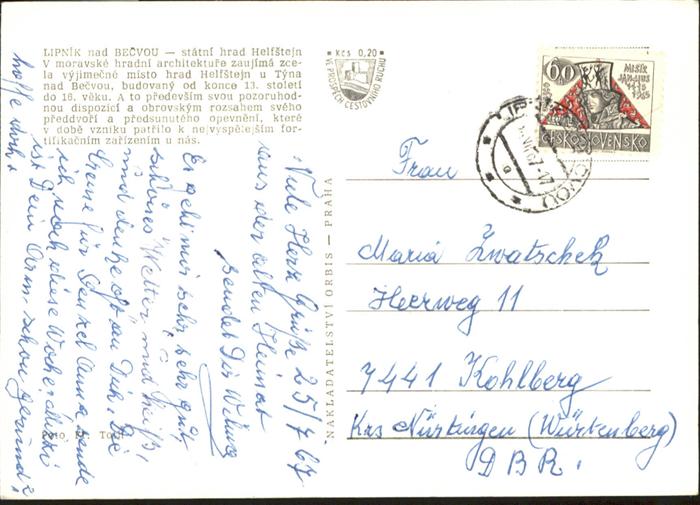 LIPNÍK nad BEČVOU — státní hrad Helfštejn
V moravské hradní architektuře zaujímá zce-
la výjimečné místo hrad Helfštejn u Týna
nad Bečvou, budovaný od konce 13. století
do 16. věku. A to především svou pozoruhod-
nou dispozicí a obrovským rozsahem svého
předdvoří a předsunutého opevnění, které
v době vzniku patřilo k nejvyspělejším for-
tifikačním zařízením u nás.
Kčs 0,20
VE PROSPĚCH CESTOVNÍHO RUCHU
60
MISTR
JAN HUS
1415
1965
ČESKOSLOVENSKO
NAKLADATELSTVÍ ORBIS — PRAHA
25/7 67
Viele Herz. Grüße
aus der alten Heimat
sendet Dir
Es geht mir sehr sehr gut,
schönes Wetter und heiß,
und denke oft an Dich. Die
Grüße für
ich noch diese Woche.
ist Dein Arm schon gesund?
hoffe doch.
Frau
Maria Zwatschek
Heerweg 11
7441 Kohlberg
Krs Nürtingen (Würtenberg)
DBR.